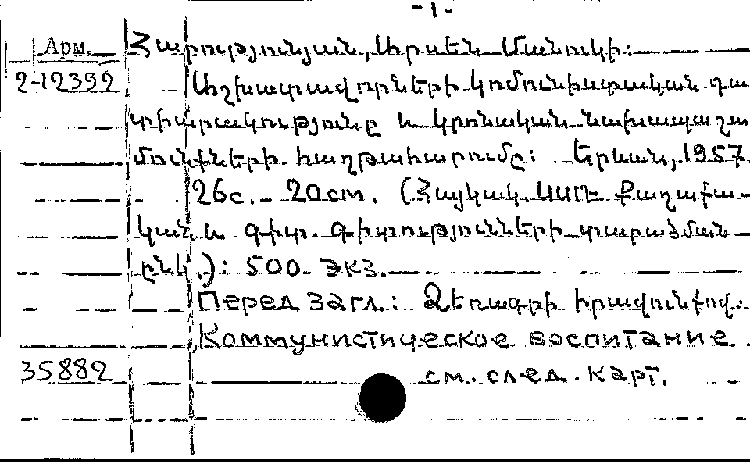 -1-
Арм. Հարությունյան, Արսեն Մանուկի:
2-12392 Աշխատավորների կոմունիստական դա
տիարակությունը և կրոնական նախապաշա
մունքների հաղթահարումը: Երևան, 1957
26с. 20см. (Հայկակ. ՍՍՌ Քաղաքա
կան և գիտ. գիտությունների տարածման
ընկ.): 500 экз.
Перед загл.: Ձեռագրի իրավունքով.
Коммунистическое воспитание
35882 см. след. карт.